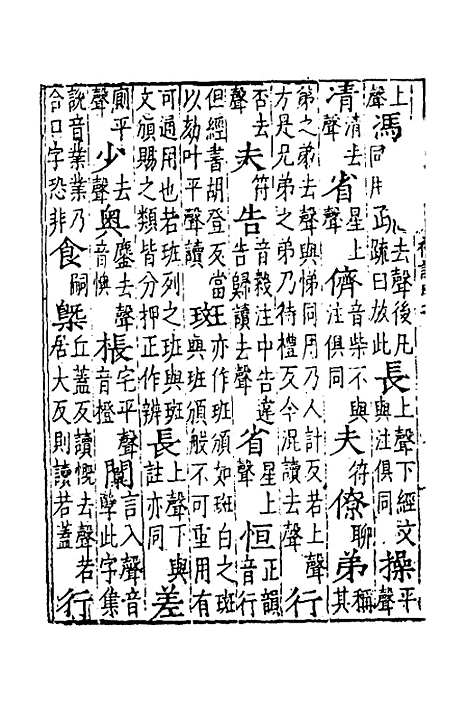 上聲馮同去聲後凡疏曰放此長上聲下經文與注俱同操平聲
凊清去聲省星上聲儕音柴不與注俱同夫符僚聊弟稱其
弟之弟去聲與悌同用乃人計反若上聲方是兄弟之弟乃待禮反今況讀去聲行
否去聲夫符告音穀注中告違告歸讀去聲省星上聲恒正韻音行
但經書胡登反當以劾叶平聲讀班亦作班頒如斑白之斑與班頒般不可重用有
可通用也若班列之班與班文頒賜之類皆分押正作辨長上聲下與註亦同差
廁平聲少去聲奥鏖去聲音懊棖宅平聲音橙闑言入聲音孽此字集
說音業業乃合口字恐非食嗣槩丘蓋反讀慨去聲若居大反則讀若蓋行